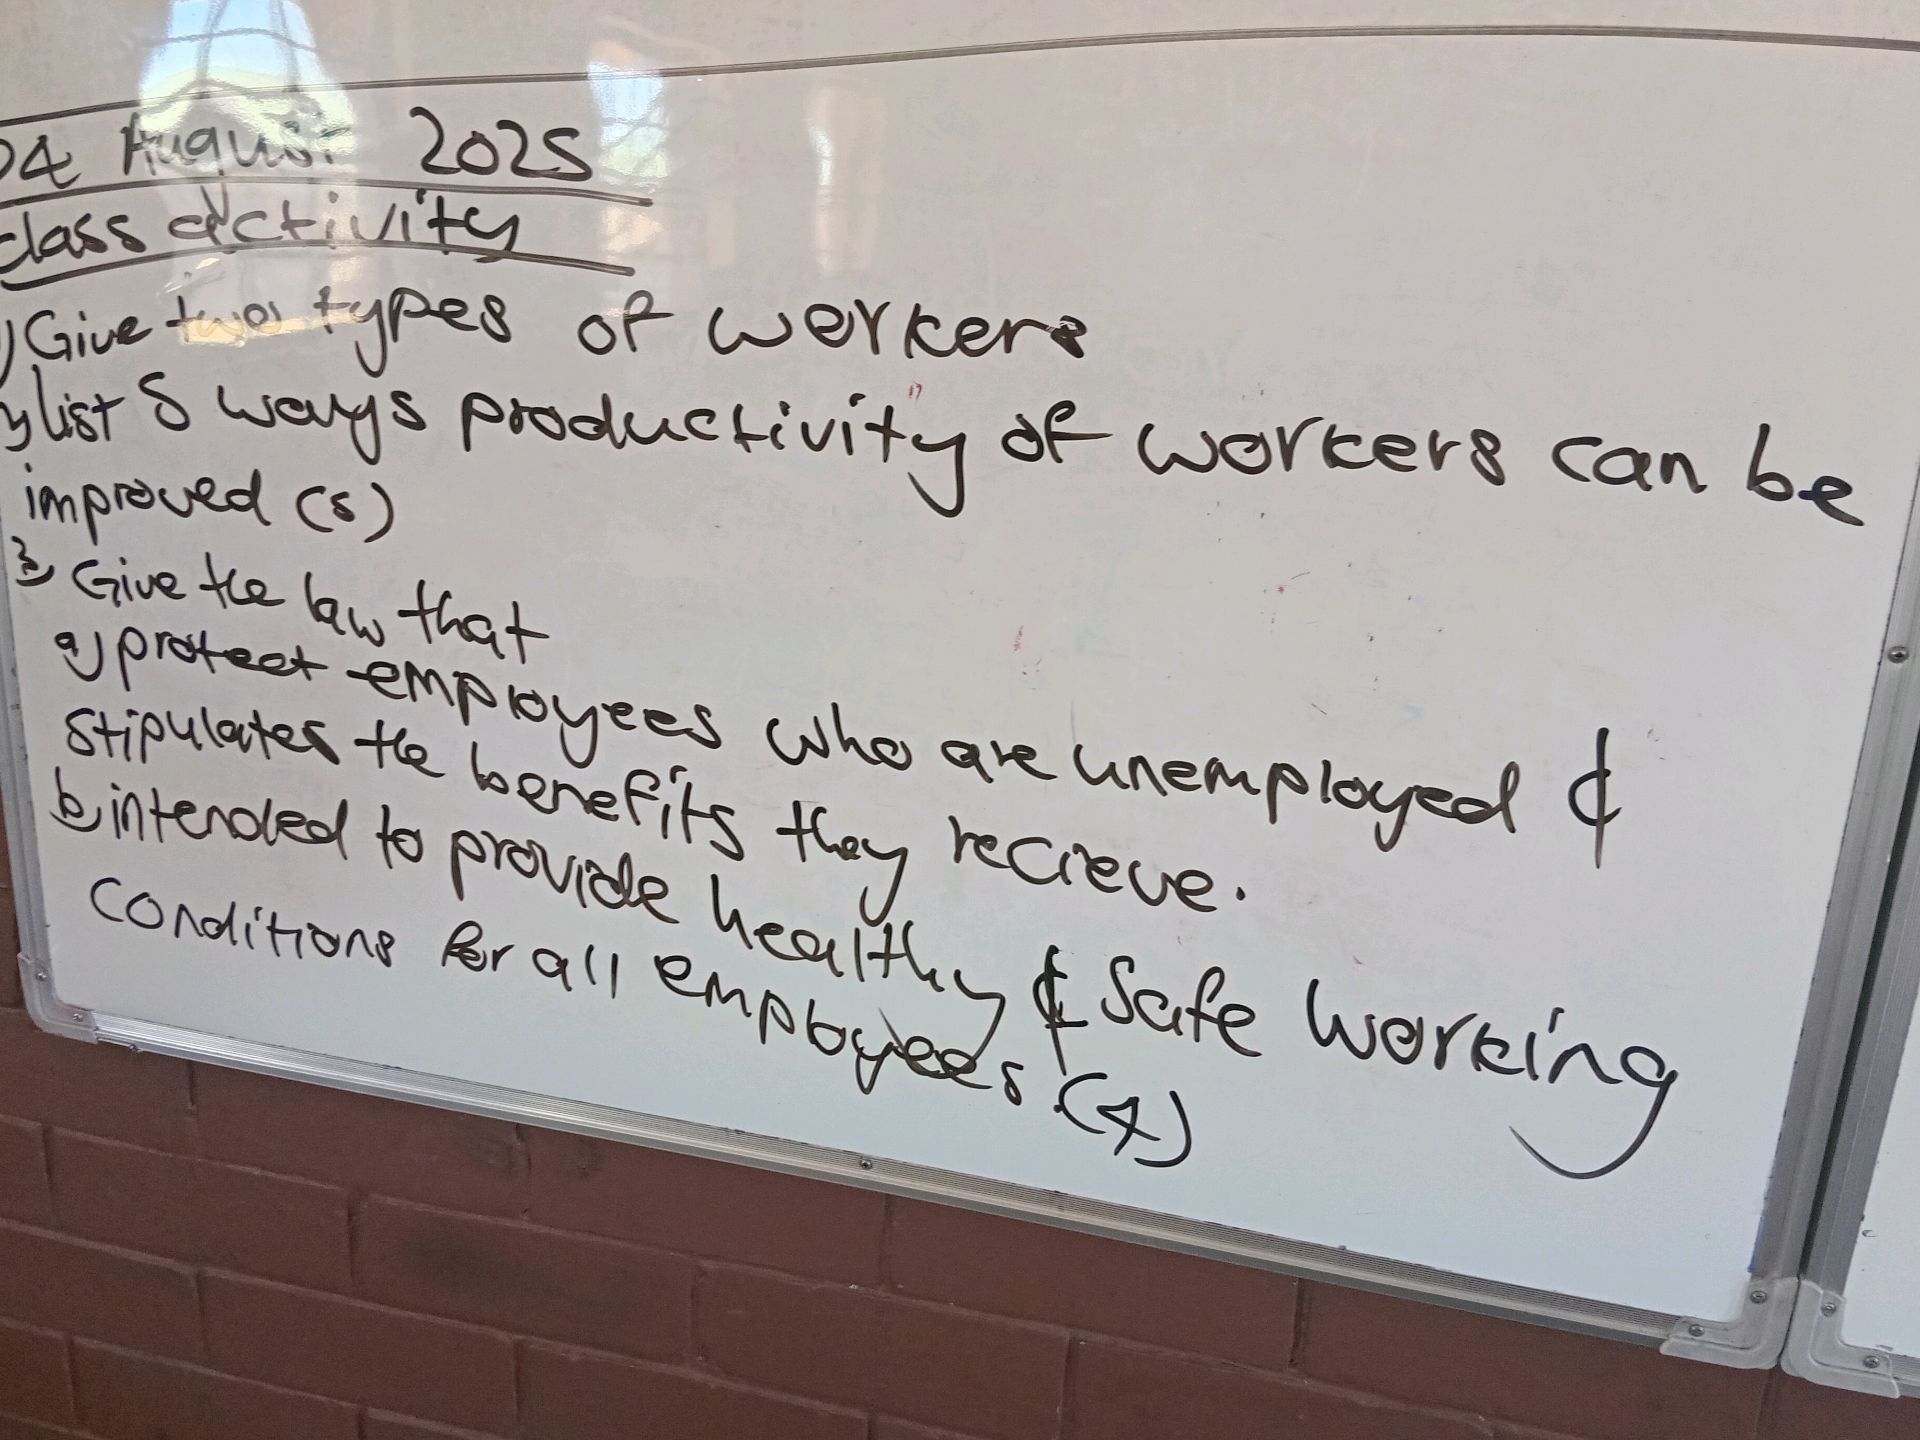 04 August 2025
class activity
1) Give two types of workers
2) list 5 ways productivity of workers can be
improved (5)
3) Give the law that
a) protect employees who are unemployed &
stipulates the benefits they recieve.
b) intended to provide healthy & safe working
conditions for all employees (4)